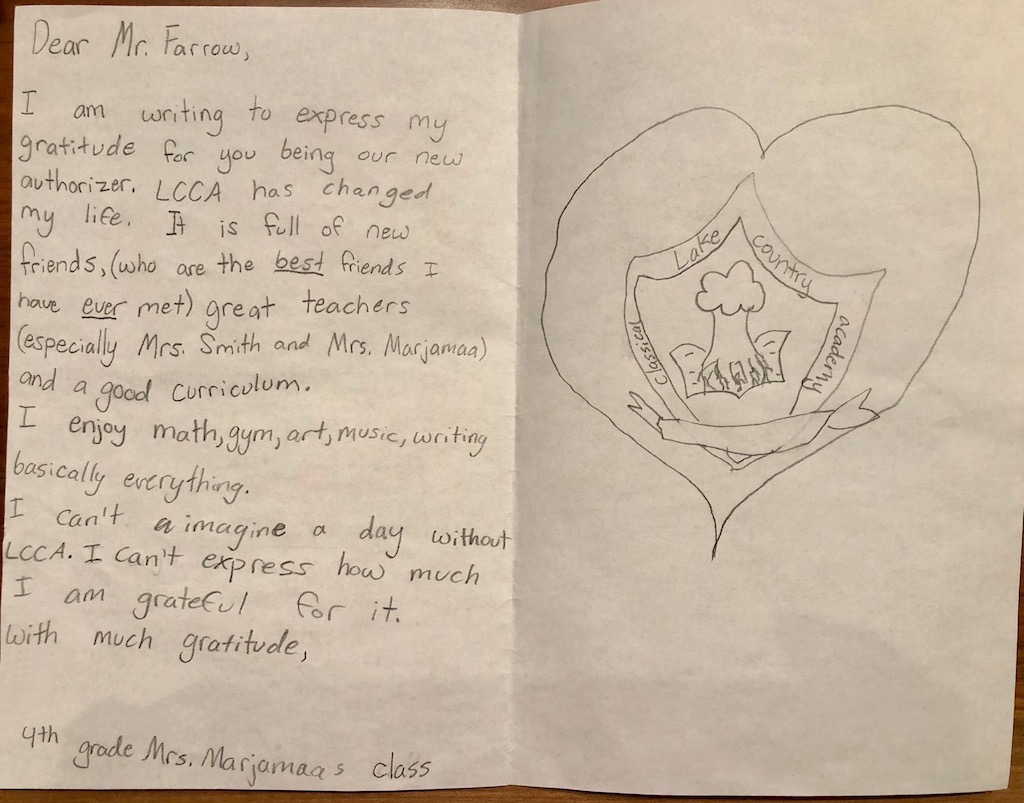 Dear Mr. Farrow,
I am writing to express my
gratitude for you being our new
authorizer. LCCA has changed
my life. It is full of new
friends, (who are the best friends I
have ever met) great teachers
(especially Mrs. Smith and Mrs. Marjamaa)
and a good curriculum.
I enjoy math, gym, art, music, writing
basically everything.
I can't a imagine a day without
LCCA. I can't express how much
I am grateful for it.
With much gratitude,
4th grade Mrs. Marjamaas class
Lake country
classical academy